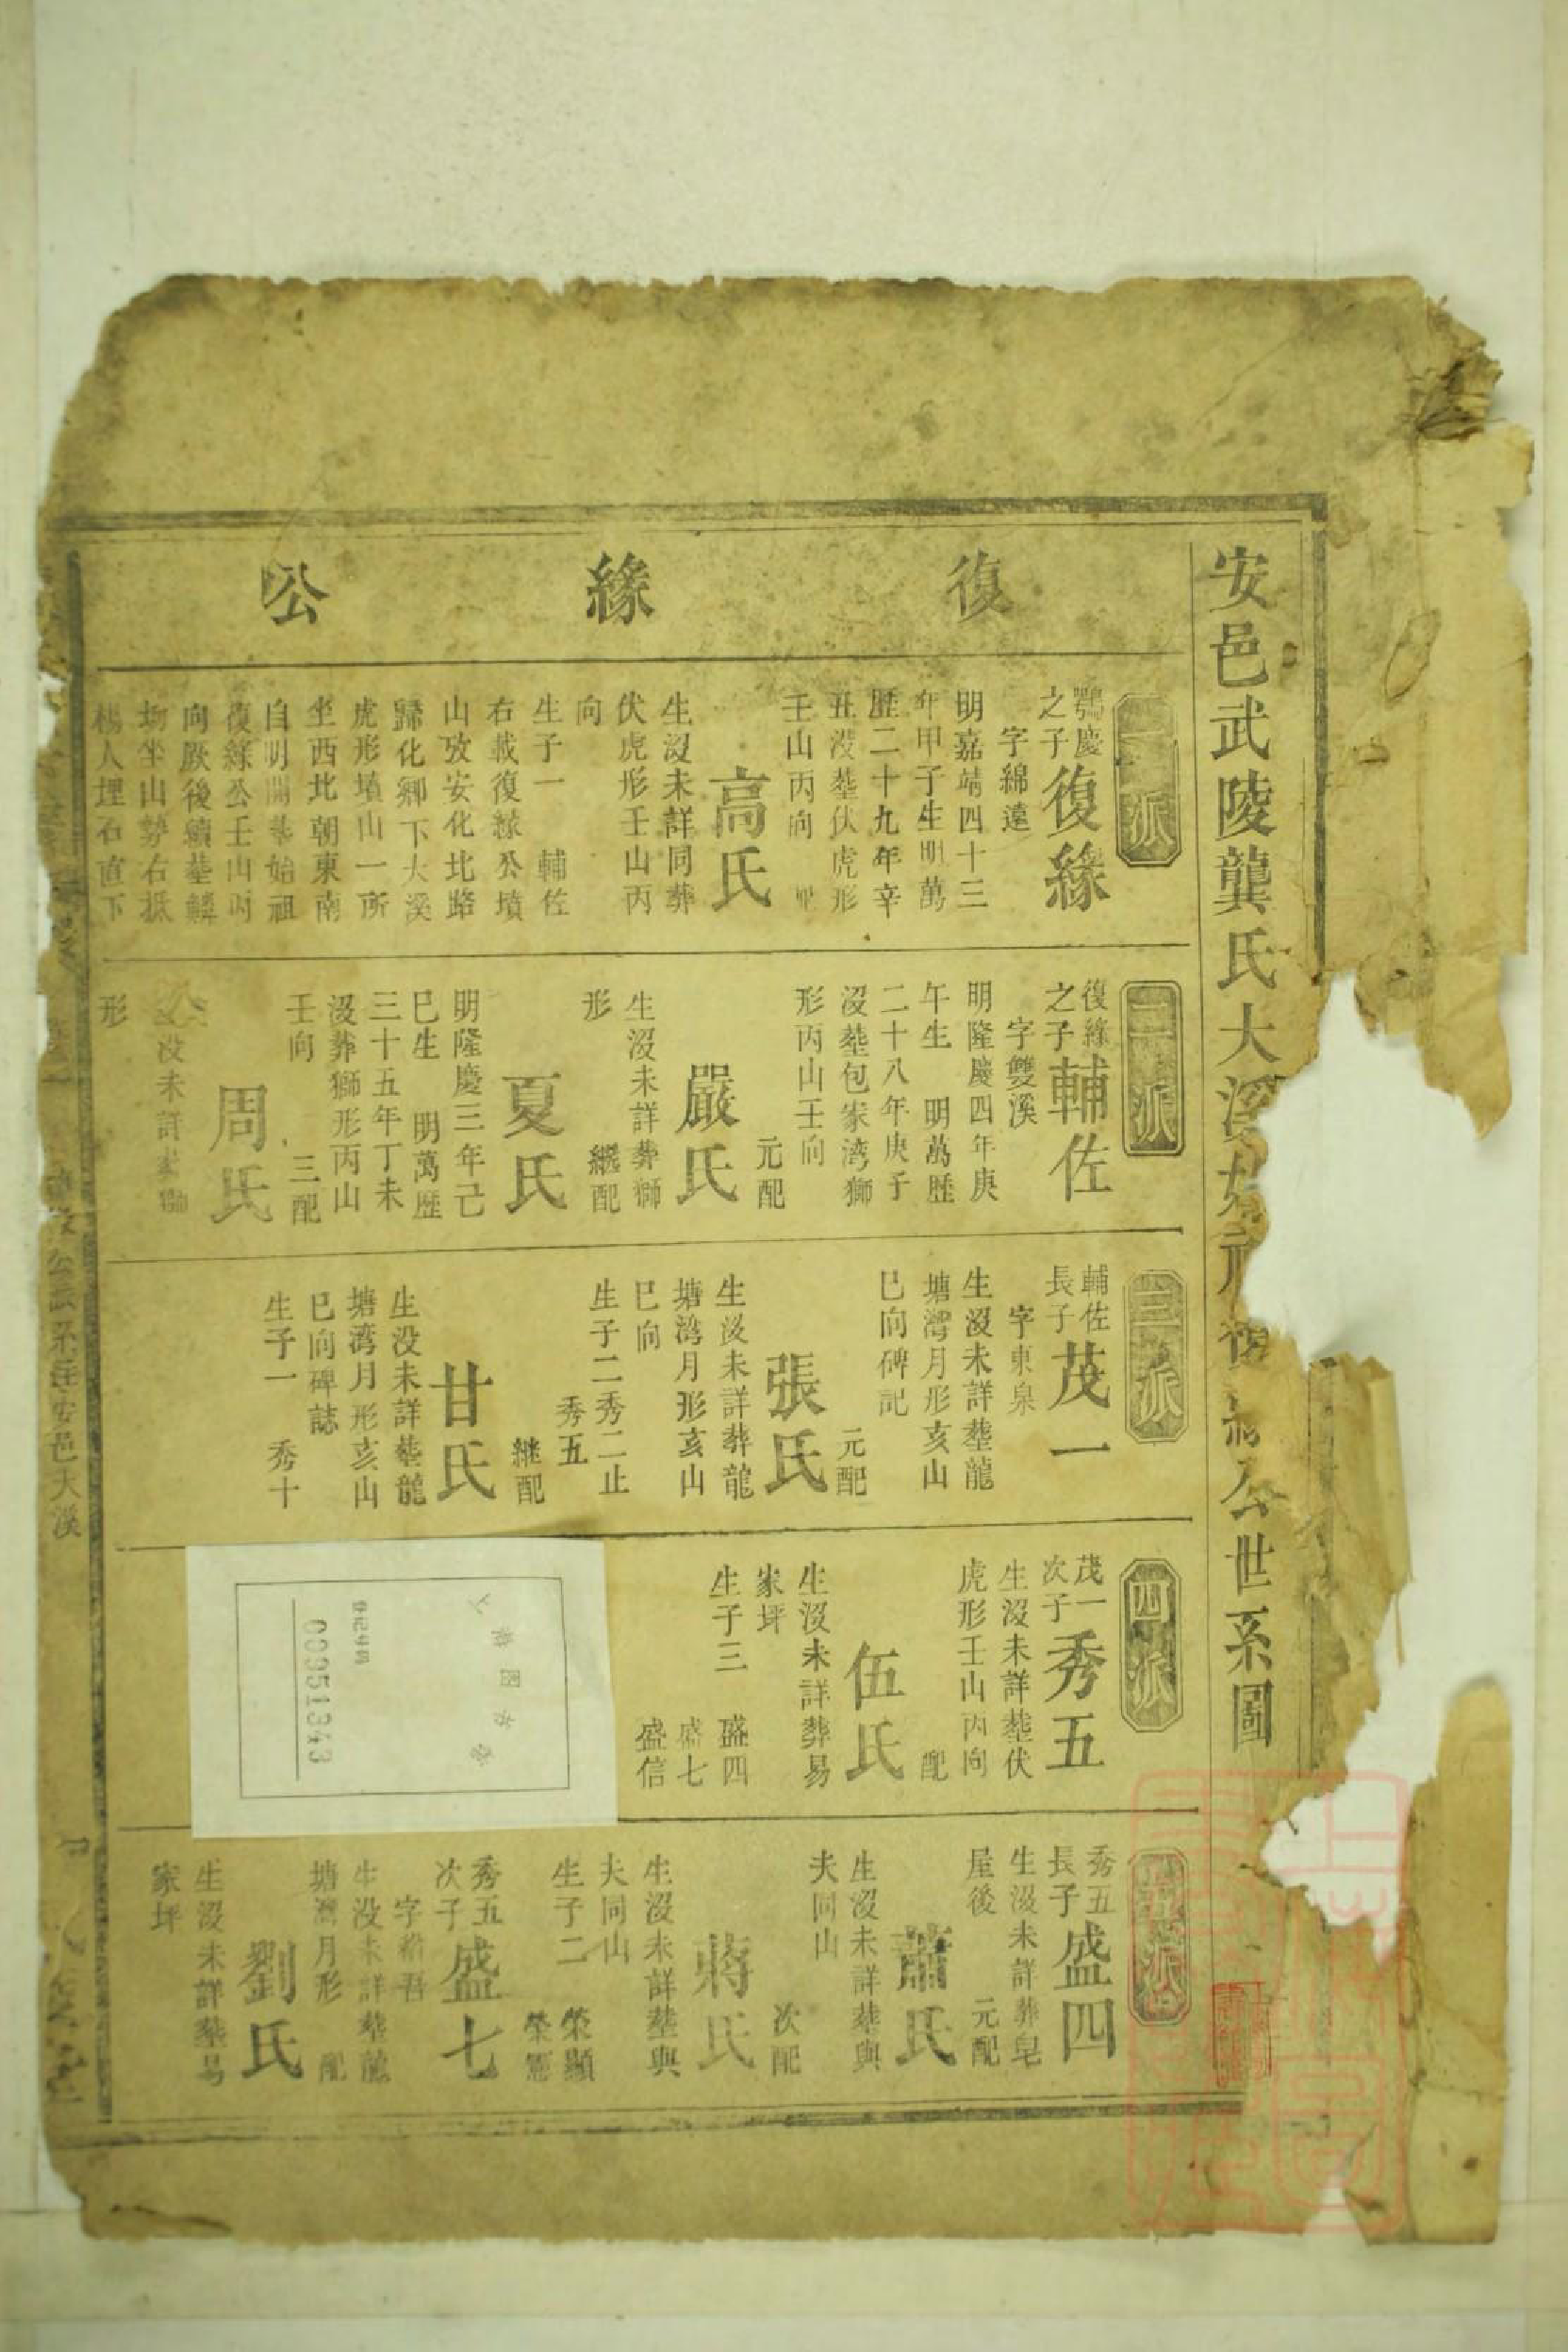 安邑武陵龔氏大溪始祖復緣公世系圖
復緣公
一派
鶚慶
之子
復緣
字綿遠
明嘉靖四十三
年甲子生明萬
歷二十九年辛
丑没塟伏虎形
壬山丙向 配
高氏
生没未詳同葬
伏虎形壬山丙
向
生子一 輔佐
右載復緣公墳
山攷安化北路
歸化鄉下大溪
虎形墳山一所
坐西北朝東南
自明開基始祖
復緣公壬山丙
向厥後續塟鱗
坐山勢右抵
楊人埋石直下
二派
復緣
之子
輔佐
字雙溪
明隆慶四年庚
午生 明萬歷
二十八年庚子
没塟包家湾獅
形丙山壬向
元配
嚴氏
生没未詳葬獅
形
繼配
夏氏
明隆慶三年己
巳生 明萬歷
三十五年丁未
没葬獅形丙山
壬向
三配
周氏
没未詳塟獅
形
三派
輔佐
長子
茂一
字東泉
生没未詳塟龍
塘灣月形亥山
巳向碑記
元配
張氏
生没未詳葬龍
塘湾月形亥山
巳向
生子二秀二止
秀五
継配
甘氏
生没未詳塟龍
塘湾月形亥山
巳向碑誌
生子一 秀十
四派
茂一
次子
秀五
生没未詳塟伏
虎形壬山丙向
配
伍氏
生没未詳葬易
家坪
生子三 盛四
盛七
盛信
五派
秀五
長子
盛四
生没未詳葬皂
屋後
元配
蕭氏
生没未詳塟與
夫同山
次配
蔣氏
生没未詳塟與
夫同山
生子二 榮顯
榮憲
秀五
次子
盛七
字吾
生没未詳塟龍
塘灣月形 配
劉氏
生没未詳塟易
家坪
公派系在安邑大溪
上海图书馆
登记号码
0051343